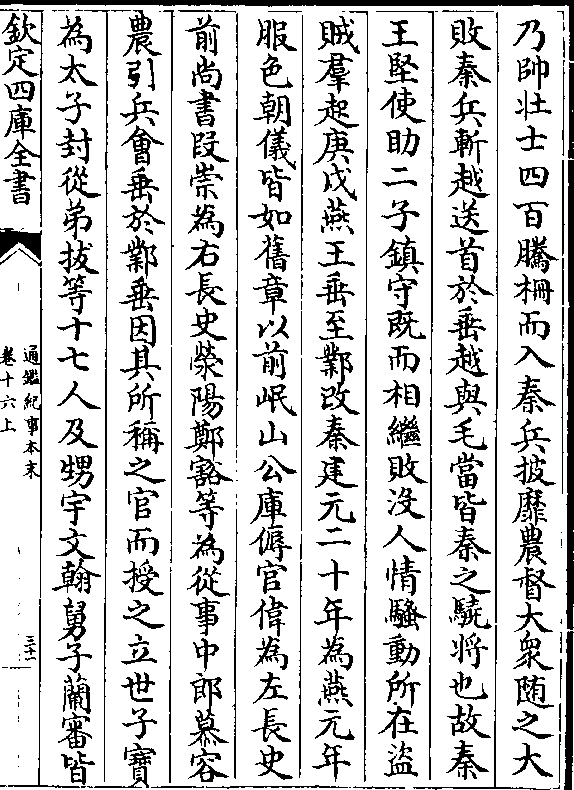 乃帥壯士四百騰柵而入秦兵披靡農督大衆随之大
敗秦兵斬越送首於垂越與毛當皆秦之驍將也故秦
王堅使助二子鎮守既而相繼敗没人情騷動所在盜
賊羣起庚戌燕王垂至鄴改秦建元二十年為燕元年
服色朝儀皆如舊章以前岷山公庫傉官偉為左長史
前尚書段崇為右長史滎陽鄭豁等為從事中郎慕容
農引兵會垂於鄴垂因其所稱之官而授之立世子寶
為太子封從弟拔等十七人及甥宇文翰舅子蘭審皆
欽定四庫全書
通鑑紀事本末
卷十六上
三十一